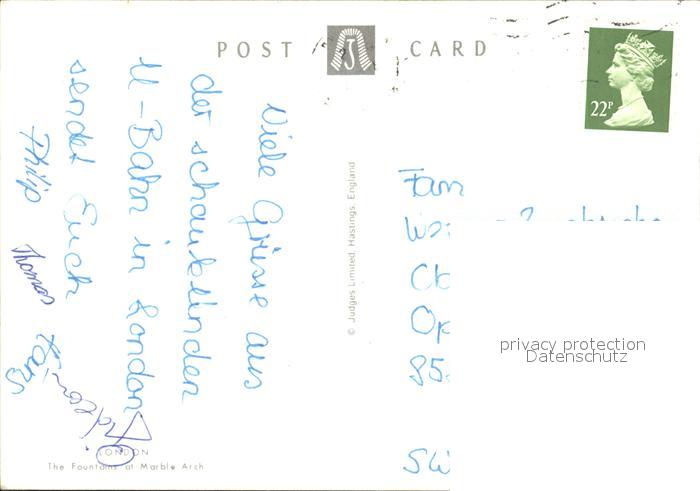 POST CARD
22P
Viele Grüsse aus
der schaukelnden
U-Bahn in London
sendet Euch
Philip Thomas
© Judges Limited, Hastings, England
Fam
Op
85
privacy protection
Datenschutz
LONDON
The Fountains at Marble Arch